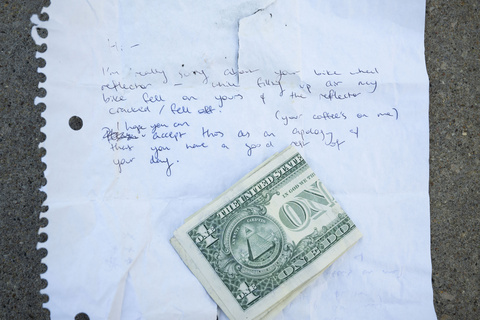 Hi -
I'm really sorry about your bike wheel
reflector - while filling up air my
bike fell on yours & the reflector
cracked / fell off. (your coffee's on me)
I hope you can
accept this as an apology &
that you have a good rest of
your day.
THE UNITED STATE
IN GOD WE
ON
1
ONE DO
1